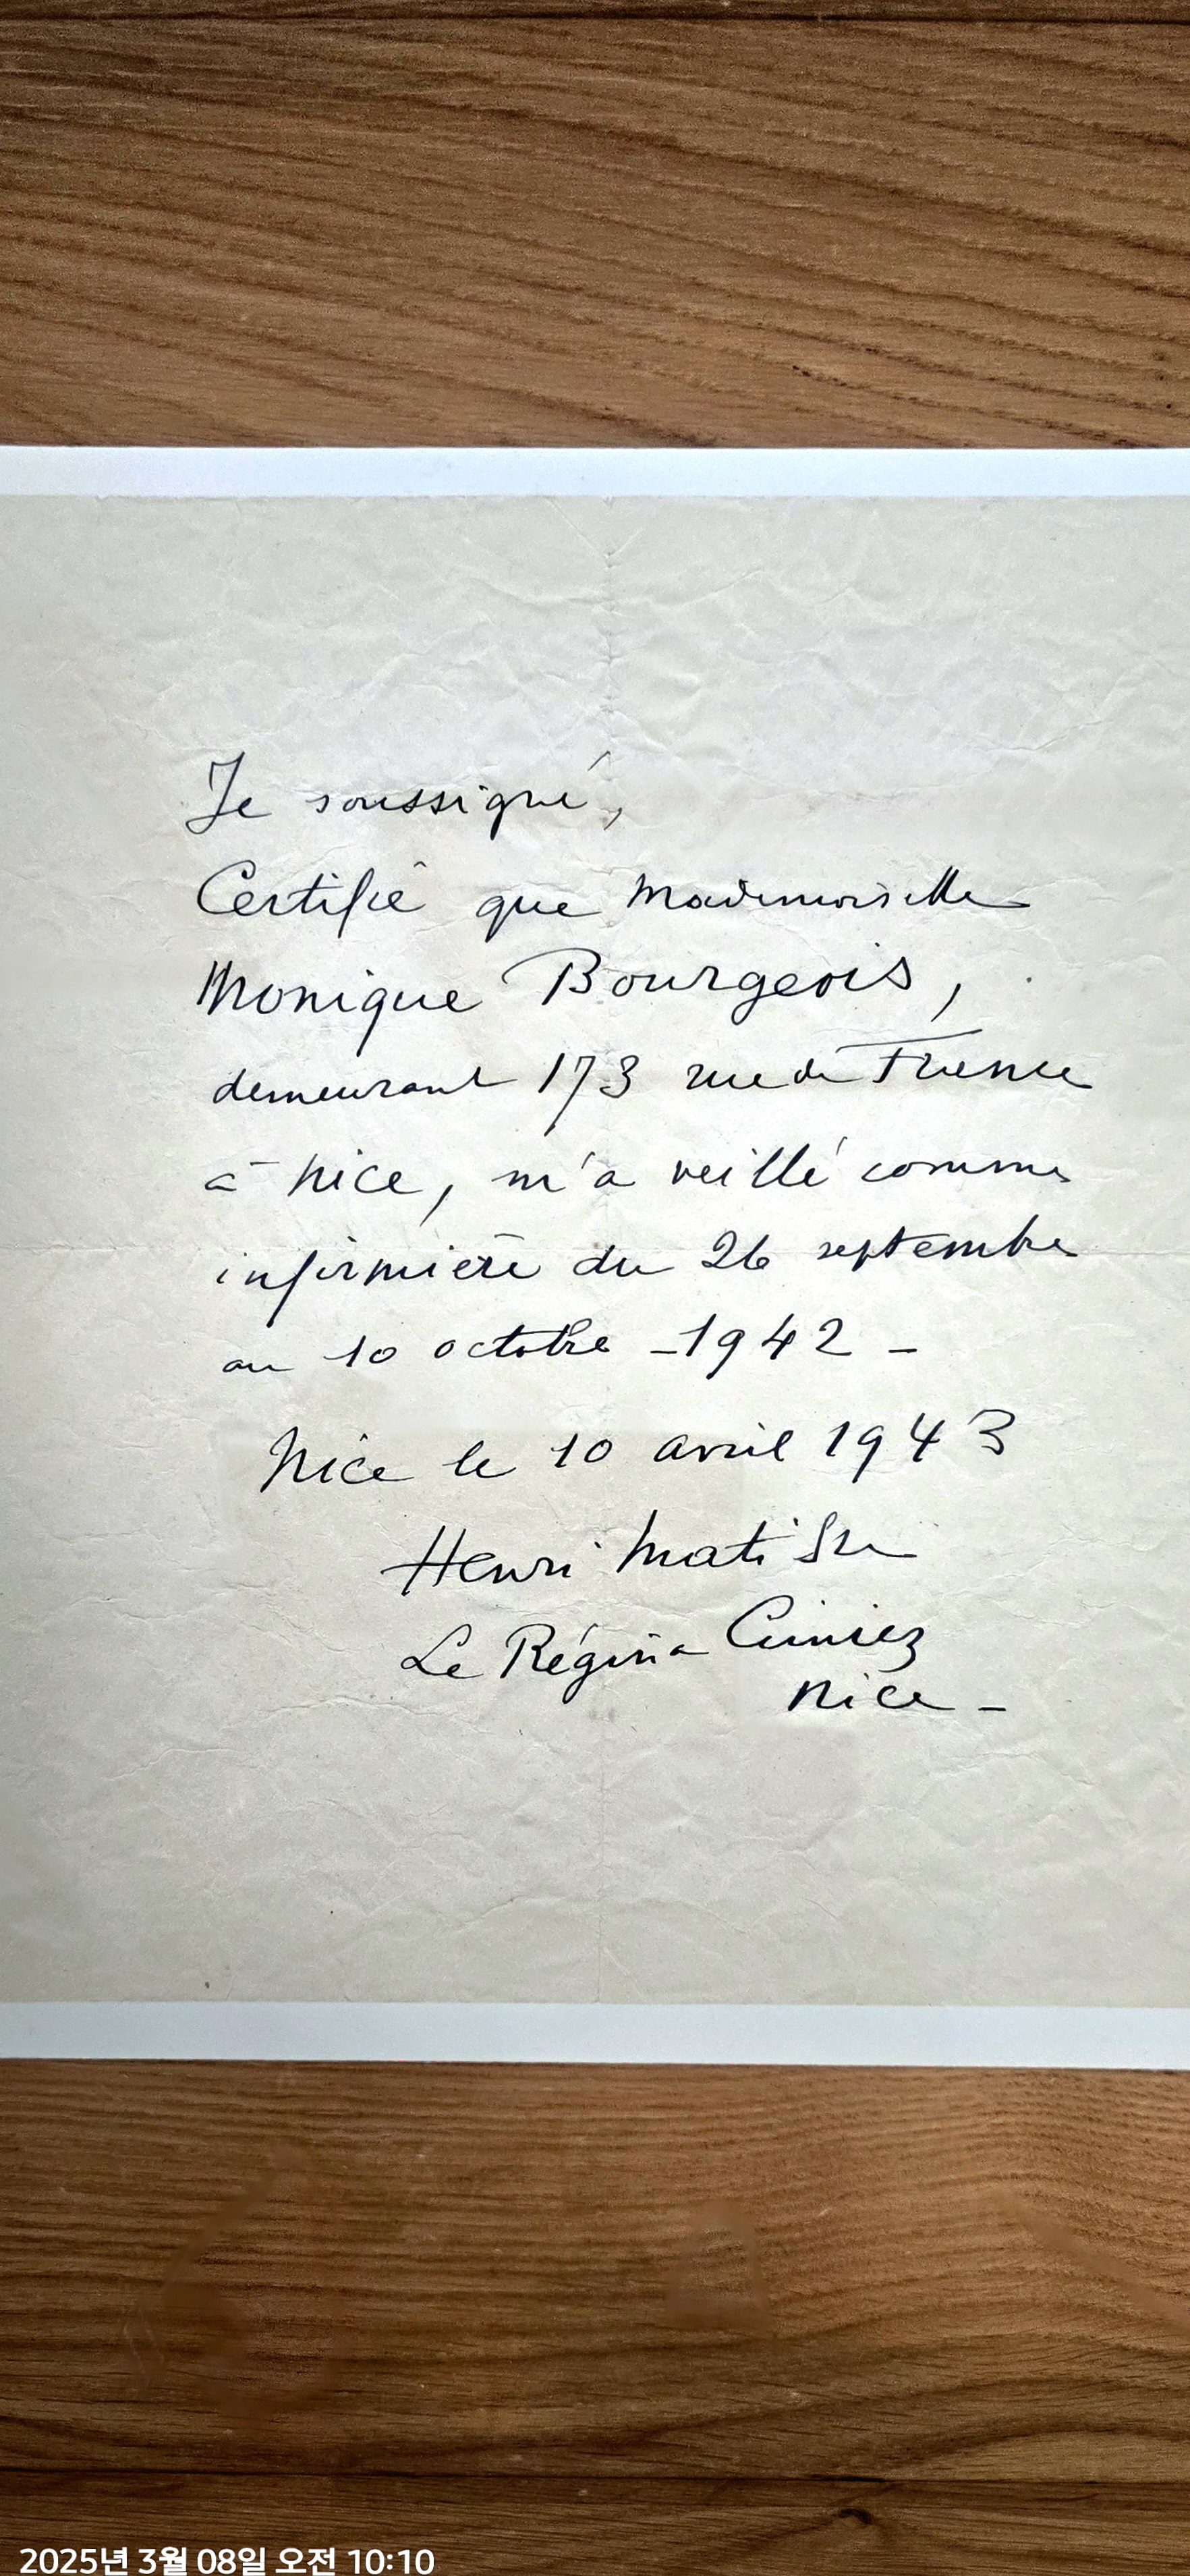 Je soussigné,
Certifie que Mademoiselle
Monique Bourgeois,
demeurant 173 rue de France
à Nice, m'a veillé comme
infirmière du 26 septembre
au 10 octobre - 1942 -
Nice le 10 avril 1943
Henri Matisse
Le Régina Cimiez
Nice -
2025년 3월 08일 오전 10:10